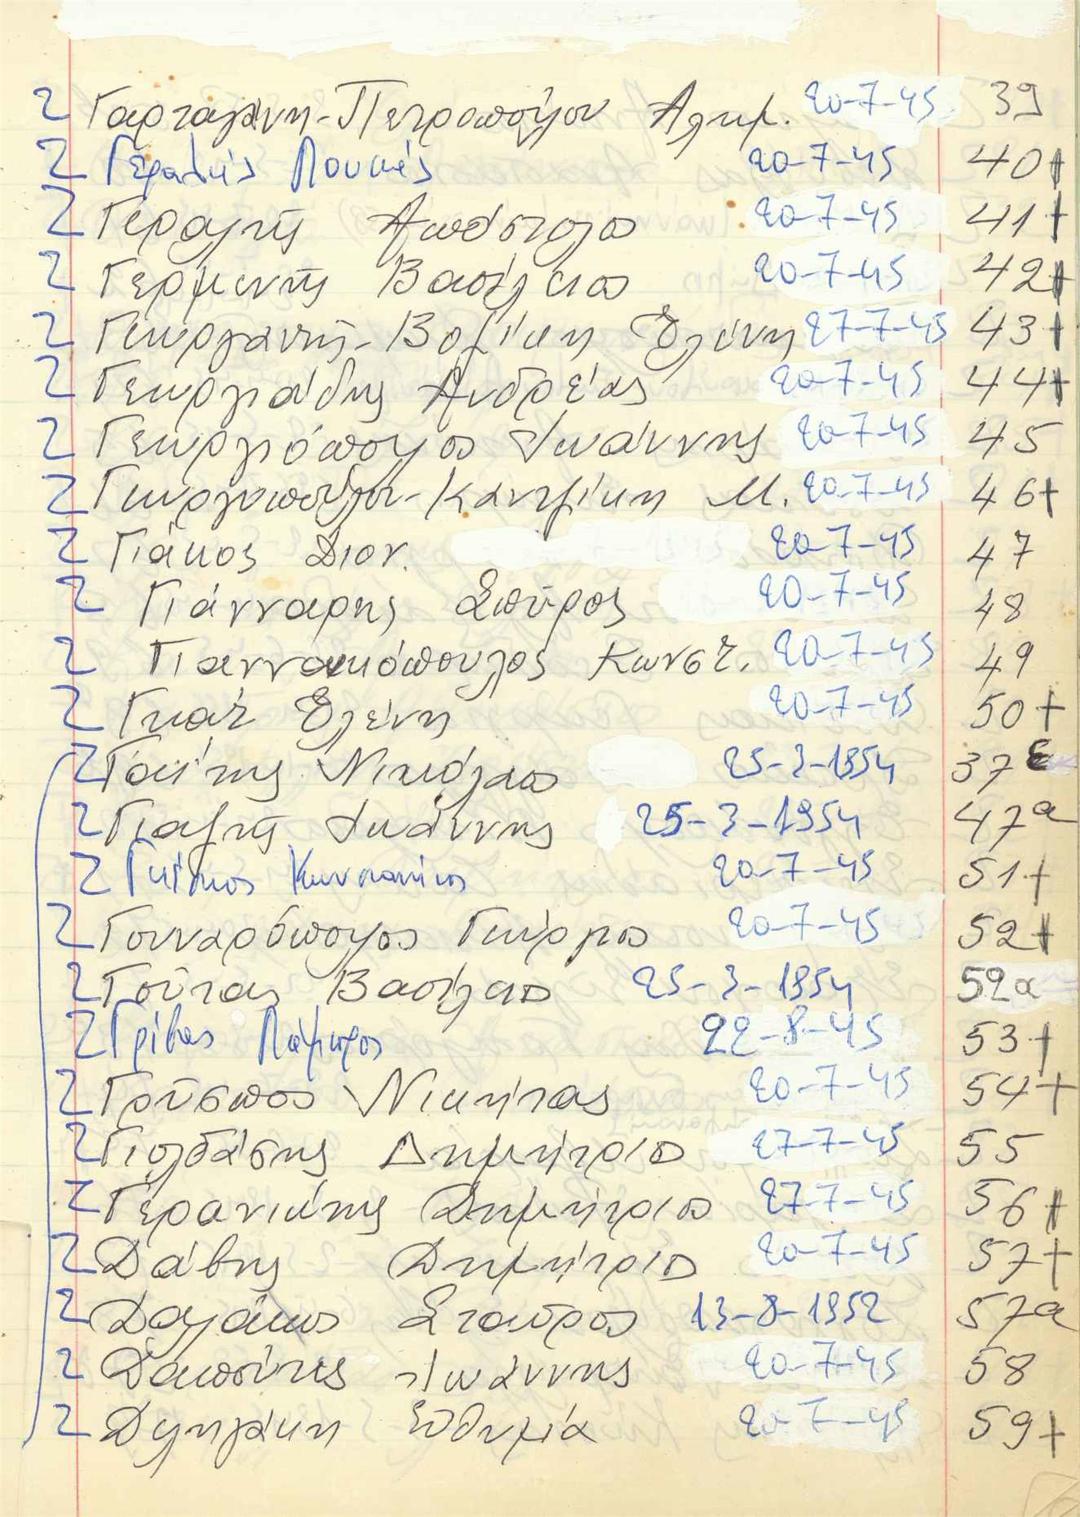 Γαρταγάνη-Πετροπούλου Αλκμ. 20-7-45 39
Γεραλής Λουκάς 20-7-45 40+
Γεραλής Απόστολος 20-7-45 41+
Γερμενής Βασίλειος 20-7-45 42+
Γεωργαντή-Βοζίκη Ελένη 27-7-45 43+
Γεωργιάδης Ανδρέας 20-7-45 44+
Γεωργιόπουλος Ιωάννης 20-7-45 45
Γεωργοπούλου-Καντζίκη Μ. 20-7-45 46+
Γιάκος Διον. 20-7-45 47
Γιάνναρης Σπύρος 20-7-45 48
Γιαννακόπουλος Κωνστ. 20-7-45 49
Γκατ Ελένη 20-7-45 50+
Γαΐτης Νικόλαος 25-3-1954 37ε
Γιαξής Ιωάννης 25-3-1954 47α
Γκίκος 20-7-45 51+
Γουναρόπουλος Γεώργιος 20-7-45 52+
Γούτας Βασίλειος 25-3-1954 52α
Γρίβας Λάμπρος 22-8-45 53+
Γρύσπος Νικήτας 20-7-45 54+
Γιολδάσης Δημήτριος 27-7-45 55
Γερανιώτης Δημήτριος 27-7-45 56+
Δάβης Δημήτριος 20-7-45 57+
Δαλάκος Σταύρος 13-8-1952 57α
Δαπόντες Ιωάννης 20-7-45 58
Δεληλάκη Ευθυμία 20-7-45 59+